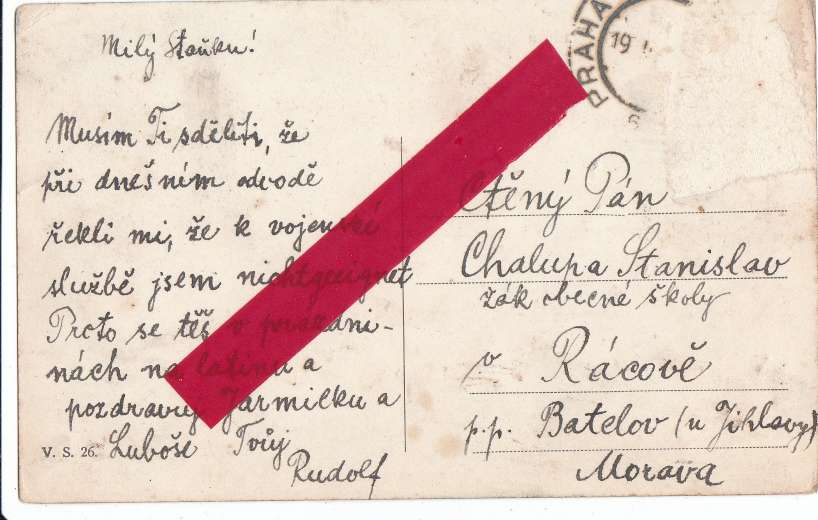 Milý Staňku!
Musím Ti sděliti, že
při dnešním odvodě
řekli mi, že k vojenské
službě jsem nichtgeeignet
Proto se těš v prázdni-
nách na latinu a
pozdravuj Jarmilku a
Luboše Tvůj
Rudolf
V. S. 26.
PRAHA
19
Ctěný Pán
Chalupa Stanislav
žák obecné školy
v Rácově
p.p. Batelov (u Jihlavy)
Morava